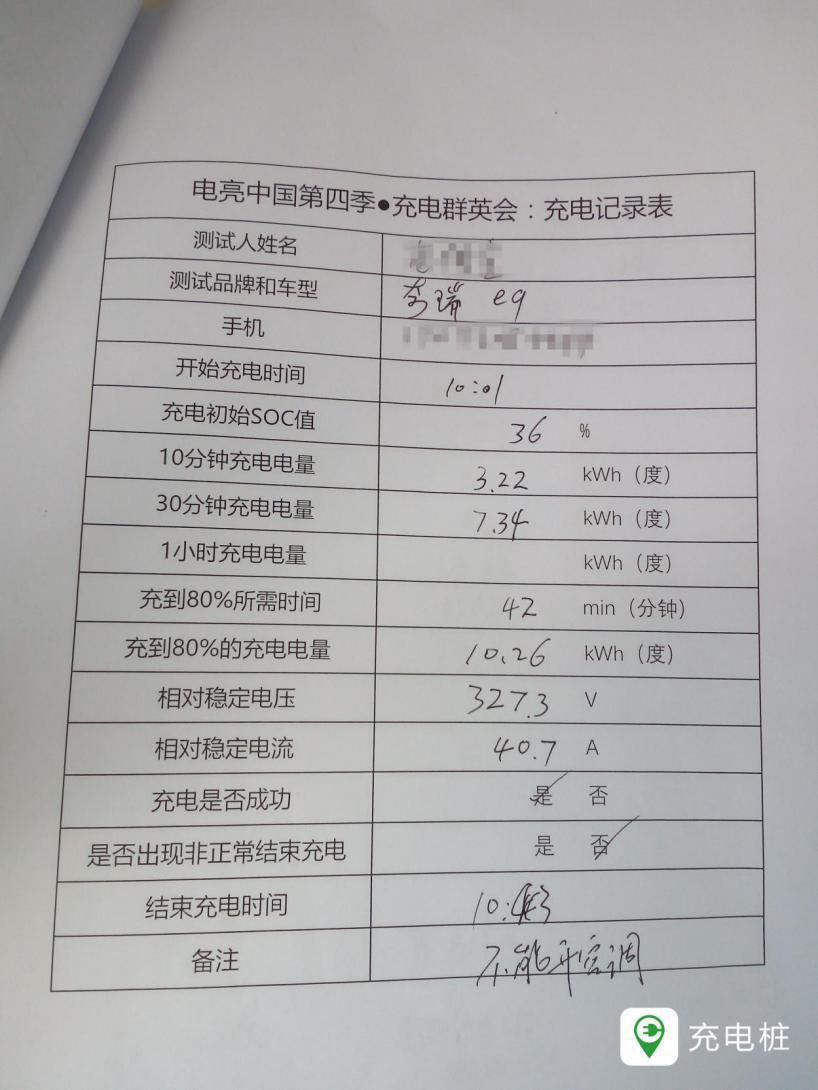 电亮中国第四季●充电群英会：充电记录表
测试人姓名
测试品牌和车型 奇瑞 eq
手机
开始充电时间 10:01
充电初始SOC值 36 %
10分钟充电电量 3.22 kWh（度）
30分钟充电电量 7.34 kWh（度）
1小时充电电量 kWh（度）
充到80%所需时间 42 min（分钟）
充到80%的充电电量 10.26 kWh（度）
相对稳定电压 327.3 V
相对稳定电流 40.7 A
充电是否成功 是 否
是否出现非正常结束充电 是 否
结束充电时间 10:43
备注 不能开空调
充电桩